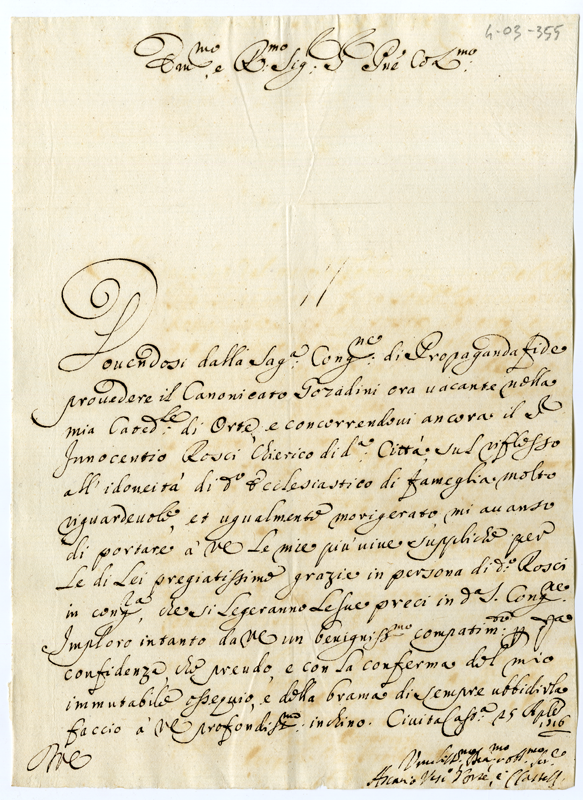 4-03-355
Em.mo e R.mo Sig.r P.ne Col.mo
Douendosi dalla Sag.a Cong.ne di Propaganda fide
prouedere il Canonicato Gozadini ora vacante nella
mia Cated.le di Orte, e concorrendoui ancora il
Innocentio Rosci Chierico di d.a Città, sul riflesso
all'idoneità di d.o Ecclesiastico di fameglia molto
riguardeuole, et ugualmente morigerato, mi auanso
di portare à VE le mie più viue suppliche per
le di Lei pregiatissime grazie in persona di d.o Rosci
in cong.ra, che si legeranno le sue preci in d.a S. Cong.ne
Imploro intanto da VE un benigniss.mo compatim.to p
confidenza, che prendo, e con la conferma del mio
immutabile ossequio, e della brama di sempre ubbidirla
faccio à VE profondiss.mo inchino. Ciuita Cast.a 25 Aple
1716
VE
Umiliss.mo Deuot.mo
Ascanio Vesc.o d'Orte, e C. Castell.